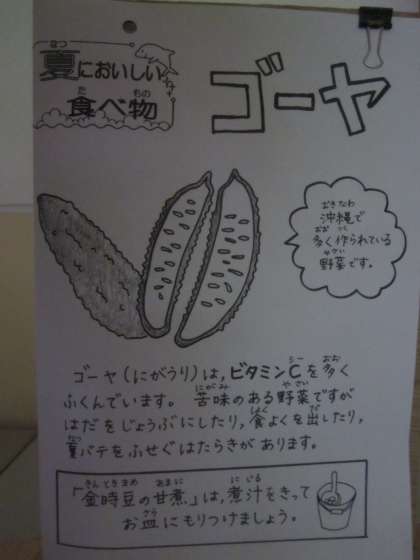 夏においしい
食べ物
ゴーヤ
沖縄で
多く作られている
野菜です。
ゴーヤ(にがうり)は,ビタミンCを多く
ふくんでいます。苦味のある野菜ですが
はだをじょうぶにしたり,食よくを出したり,
夏バテをふせぐはたらきがあります。
「金時豆の甘煮」は,煮汁をきって
お皿にもりつけましょう。